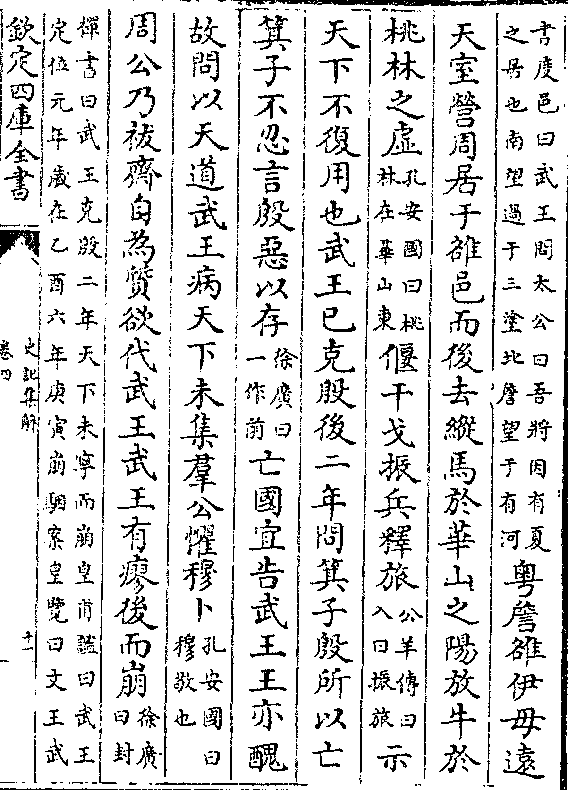 書度邑曰武王問太公曰吾將因有夏
之居也南望過于三塗北詹望于有河
粤詹雒伊毋遠
天室營周居于雒邑而後去縱馬於華山之陽放牛於
桃林之虛
孔安國曰桃
林在華山東
偃干戈振兵釋旅
公羊傳曰
入曰振旅
示
天下不復用也武王已克殷後二年問箕子殷所以亡
箕子不忍言殷惡以存
徐廣曰
一作前
亡國宜告武王王亦醜
故問以天道武王病天下未集羣公懼穆卜
孔安國曰
穆敬也
周公乃祓齋自為質欲代武王武王有瘳後而崩
徐廣
曰封
禪書曰武王克殷二年天下未寧而崩皇甫謐曰武王
定位元年歲在乙酉六年庚寅崩駰案皇覽曰文王武
欽定四庫全書
史記集解
卷四
十一